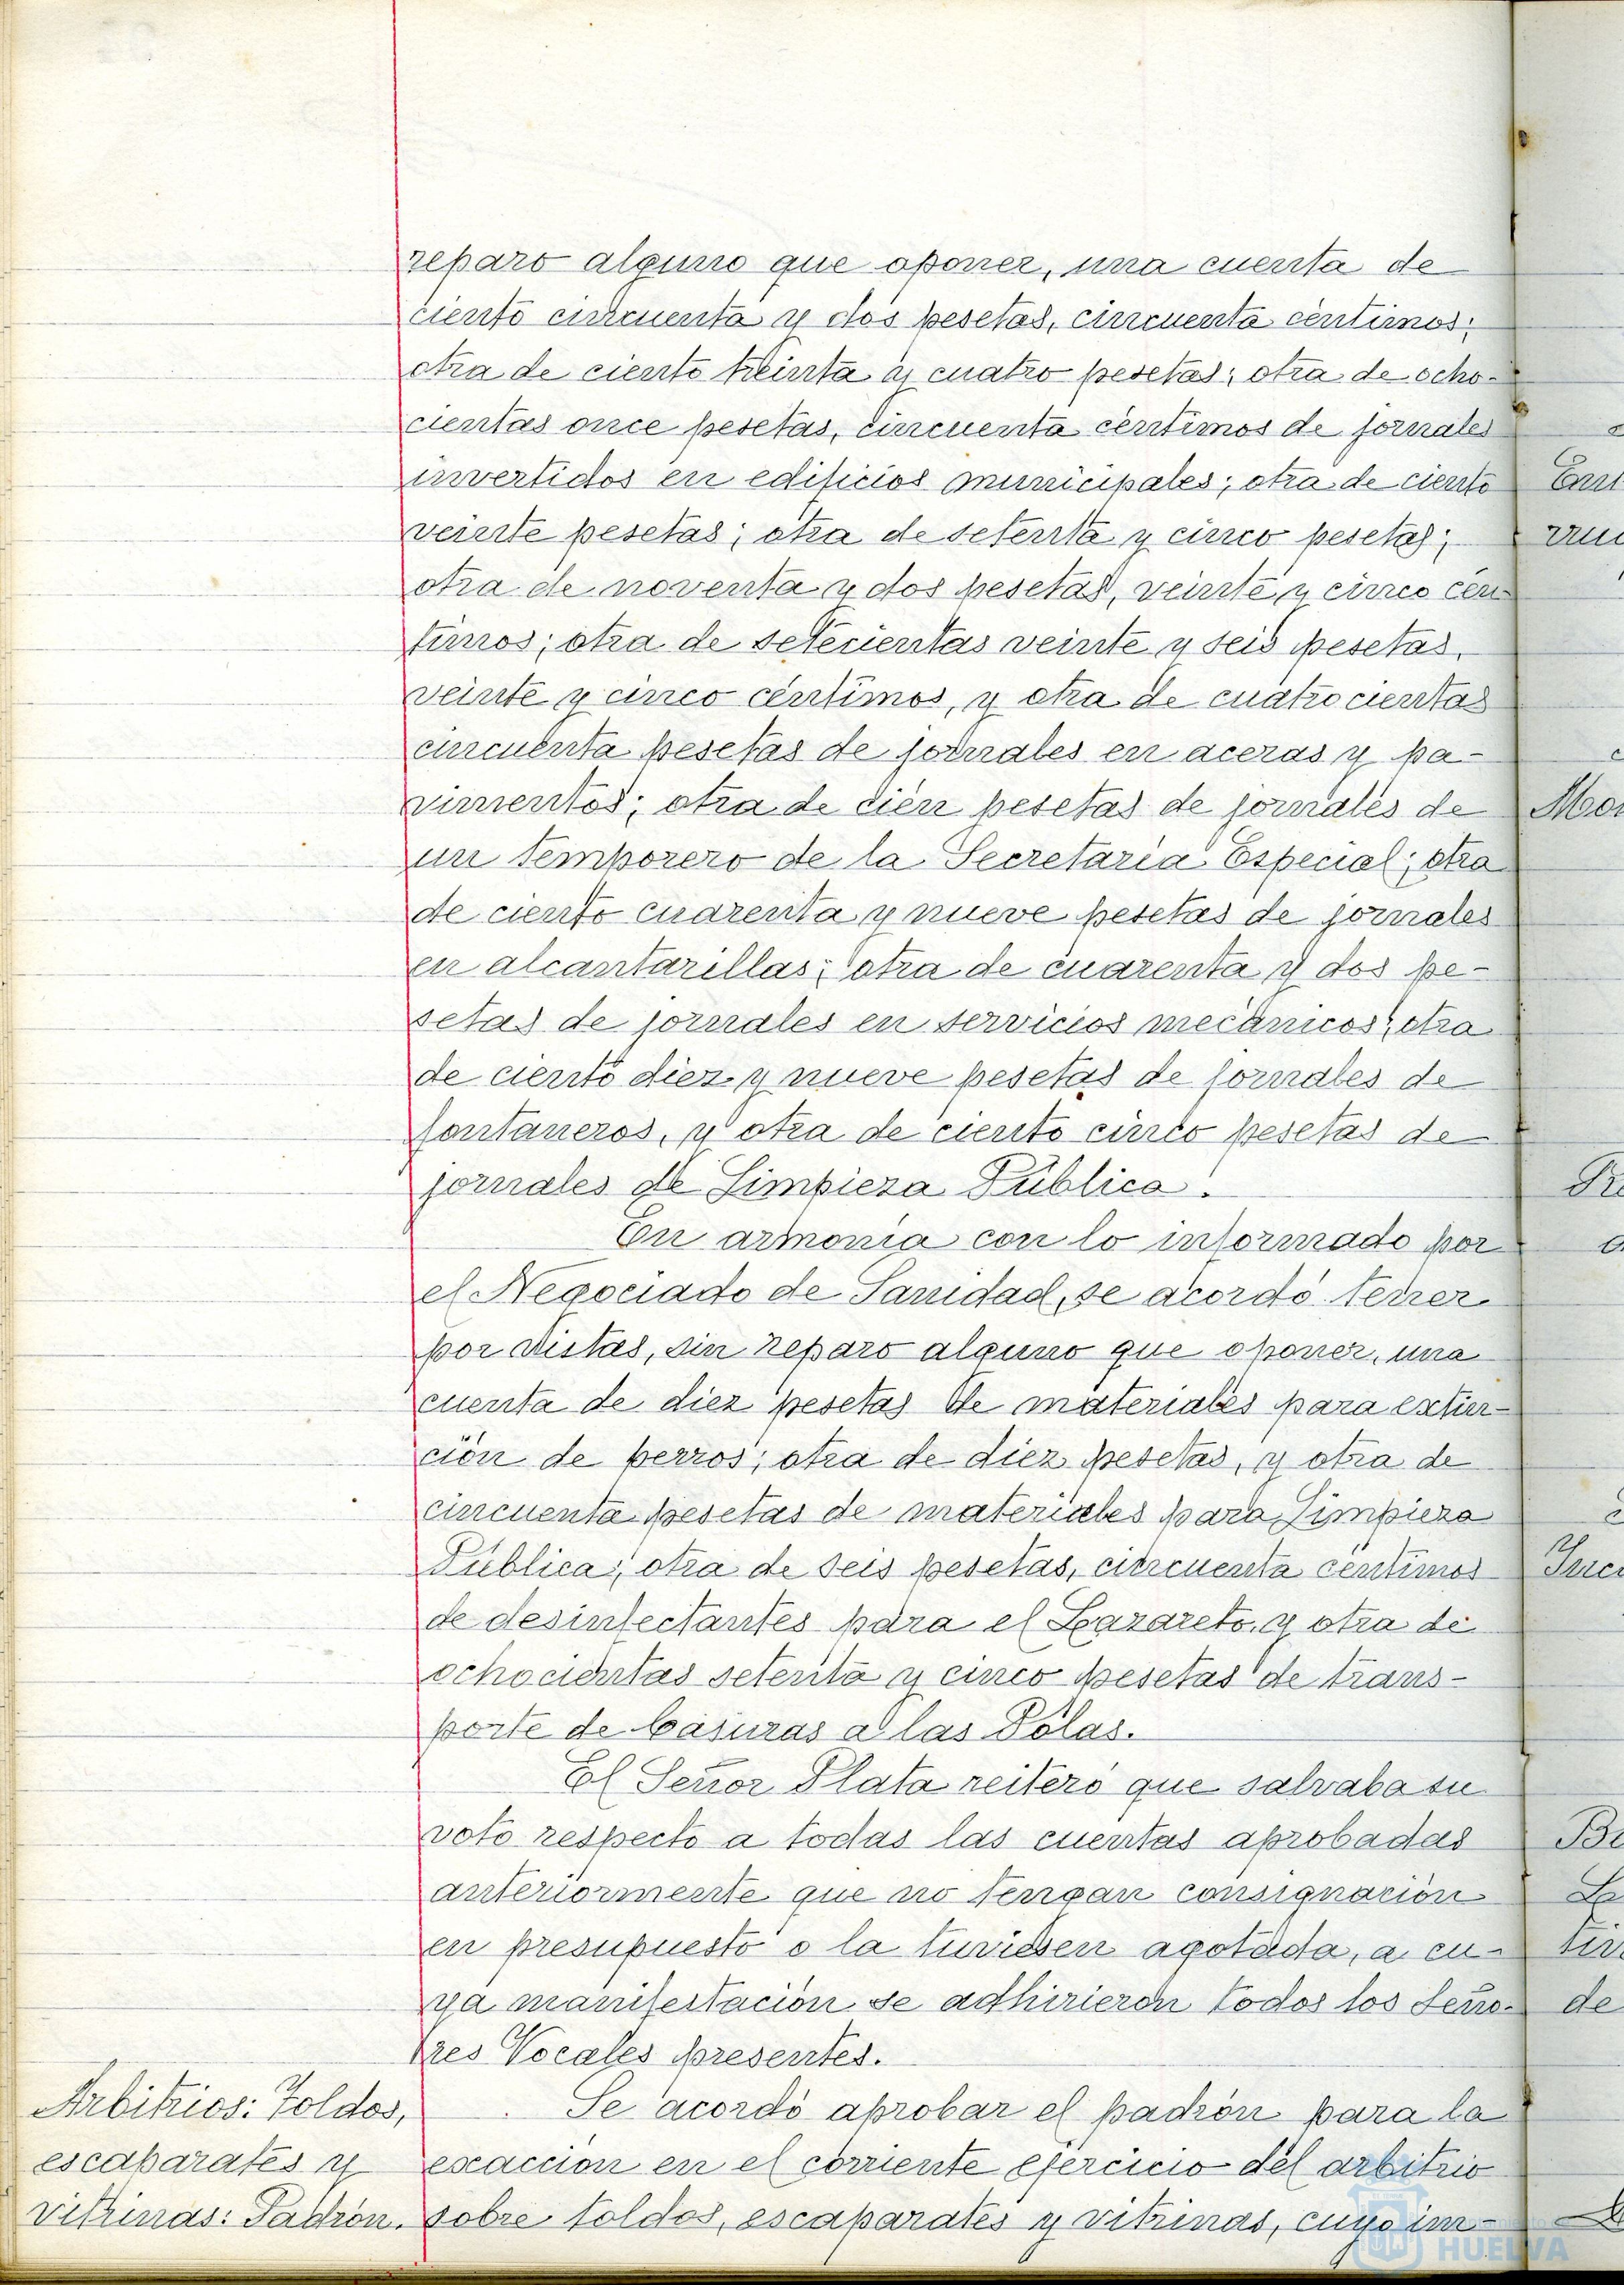 reparo alguno que oponer, una cuenta de
ciento cincuenta y dos pesetas, cincuenta céntimos;
otra de ciento treinta y cuatro pesetas; otra de ocho-
cientas once pesetas, cincuenta céntimos de jornales
invertidos en edificios municipales; otra de ciento
veinte pesetas; otra de setenta y cinco pesetas;
otra de noventa y dos pesetas, veinte y cinco cén-
timos; otra de setecientas veinte y seis pesetas,
veinte y cinco céntimos, y otra de cuatrocientas
cincuenta pesetas de jornales en aceras y pa-
vimentos; otra de cien pesetas de jornales de
un temporero de la Secretaría Especial; otra
de ciento cuarenta y nueve pesetas de jornales
en alcantarillas; otra de cuarenta y dos pe-
setas de jornales en servicios mecánicos; otra
de ciento diez y nueve pesetas de jornales de
fontaneros, y otra de ciento cinco pesetas de
jornales de Limpieza Pública.
En armonía con lo informado por
el Negociado de Sanidad, se acordó tener
por vistas, sin reparo alguno que oponer, una
cuenta de diez pesetas de materiales para extin-
ción de perros; otra de diez pesetas, y otra de
cincuenta pesetas de materiales para Limpieza
Pública; otra de seis pesetas, cincuenta céntimos
de desinfectantes para el Lazareto, y otra de
ochocientas setenta y cinco pesetas de trans-
porte de basuras a las Polas.
El Señor Plata reiteró que salvaba su
voto respecto a todas las cuentas aprobadas
anteriormente que no tengan consignación
en presupuesto o la tuviesen agotada, a cu-
ya manifestación se adhirieron todos los Seño-
res Vocales presentes.
Arbitrios: Toldos,
escaparates y
vitrinas: Padrón.
Se acordó aprobar el padrón para la
exacción en el corriente ejercicio del arbitrio
sobre toldos, escaparates y vitrinas, cuyo im-
HUELVA